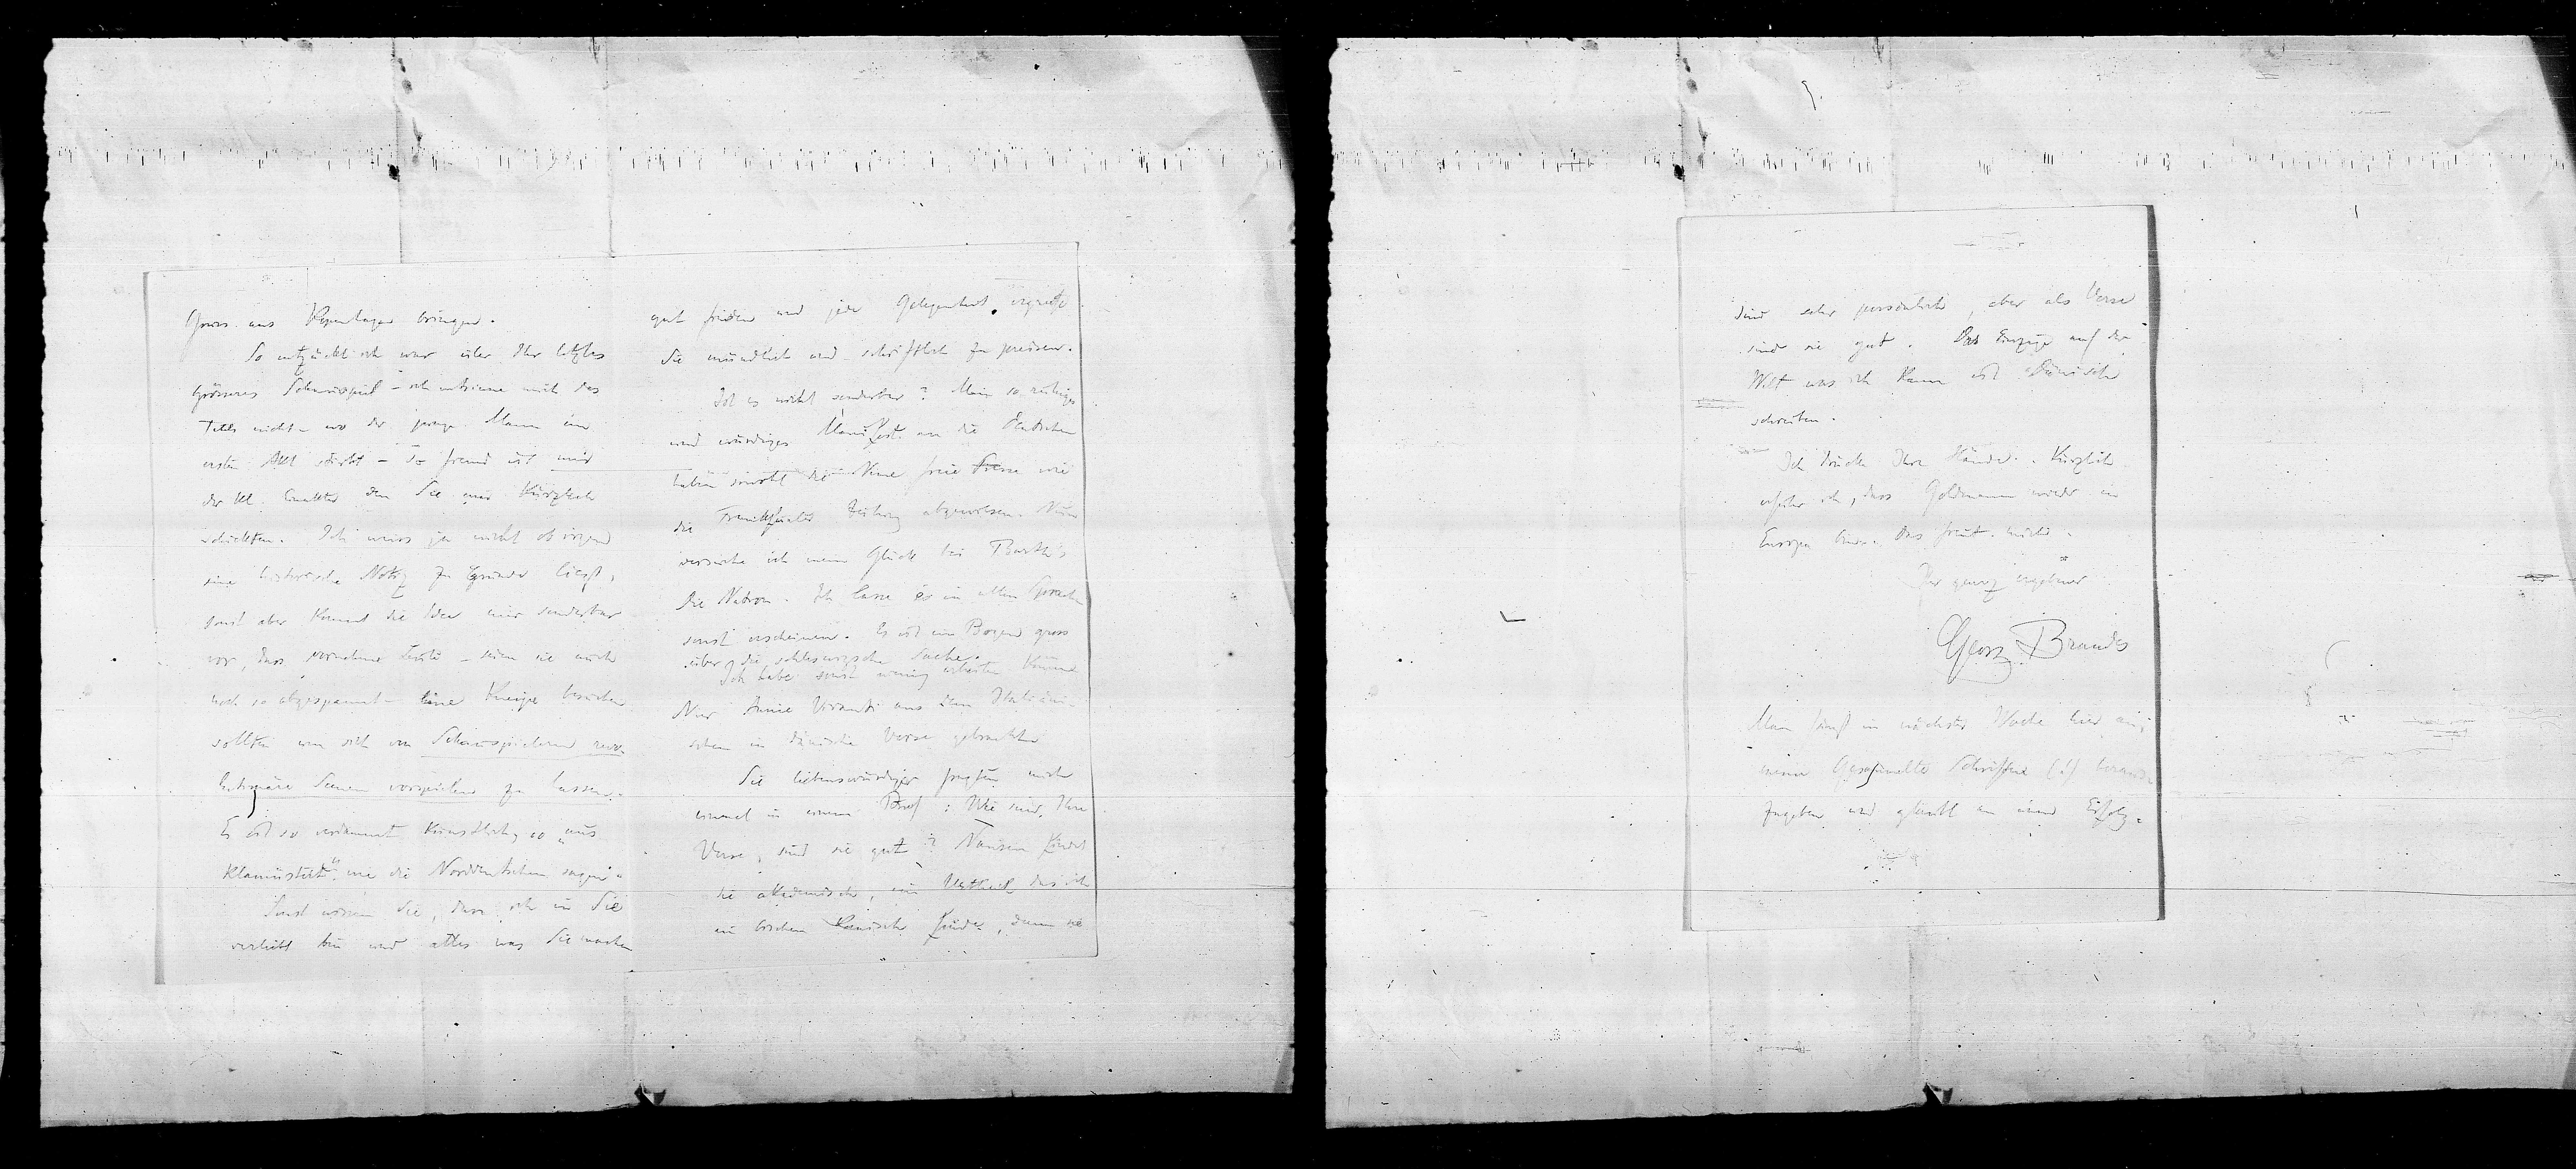 Gruss aus Kopenhagen bringen.
So entzückt ich war über Ihr letztes
grösseres Schauspiel – ich entsinne mich des
Titels nicht – wo der junge Mann im
ersten Akt stirbt – so fremd ist mir
der kl. Einakter den Sie mir kürzlich
schickten. Ich weiss ja nicht ob irgend
eine historische Notiz zu Grunde liegt,
sonst aber kommt die Idee mir sonderbar
vor, dass vornehme Leute – seien sie auch
noch so abgespannt – eine Kneipe besuchen
sollten um sich von Schauspielern revo-
lutionäre Scenen vorspielen zu lassen.
Es ist so verdammt künstlich, so „aus
klamüstert“ wie die Norddeutschen sagen.
Sonst wissen Sie, dass ich in Sie
verliebt bin und alles was Sie machen
gut finden und jede Gelegenheit ergreife
Sie mündlich und schriftlich zu preisen.
Ist es nicht sonderbar? Mein so ruhiges
und würdiges Manifest an die Deutschen
haben sowohl die Neue freie Presse wie
die Frankfurter Zeitung abgewiesen. Nun
versuche ich mein Glück bei Barth's
Die Nation. Ich lasse es in allen Sprachen
sonst erscheinen. Es ist ein Bogen gross
über die schleswigsche Sache.
Ich habe sonst wenig arbeiten können
Nur Annie Vivanti aus dem Italiäni-
schen in dänische Verse gebracht.
Sie liebenswürdiger fragten mich
einmal in einem Brief: Wie sind Ihre
Verse, sind sie gut? Nansen findet
sie akademisch, ein Urtheil das ich
ein bischen komisch finde, denn sie
sind sehr persönlich, aber als Verse
sind sie gut. Das Einzige auf der
Welt was ich kann ist Dänisch
schreiben.
Ich drücke Ihre Hände. Kürzlich
erfuhr ich, dass Goldmann wieder in
Europa ist. Das freut mich.
Ihr ganz ergebener
Georg Brandes
Man fängt in nächster Woche hier an,
meine Gesammelte Schriften (!) heraus-
zugeben und glaubt an einen Erfolg.